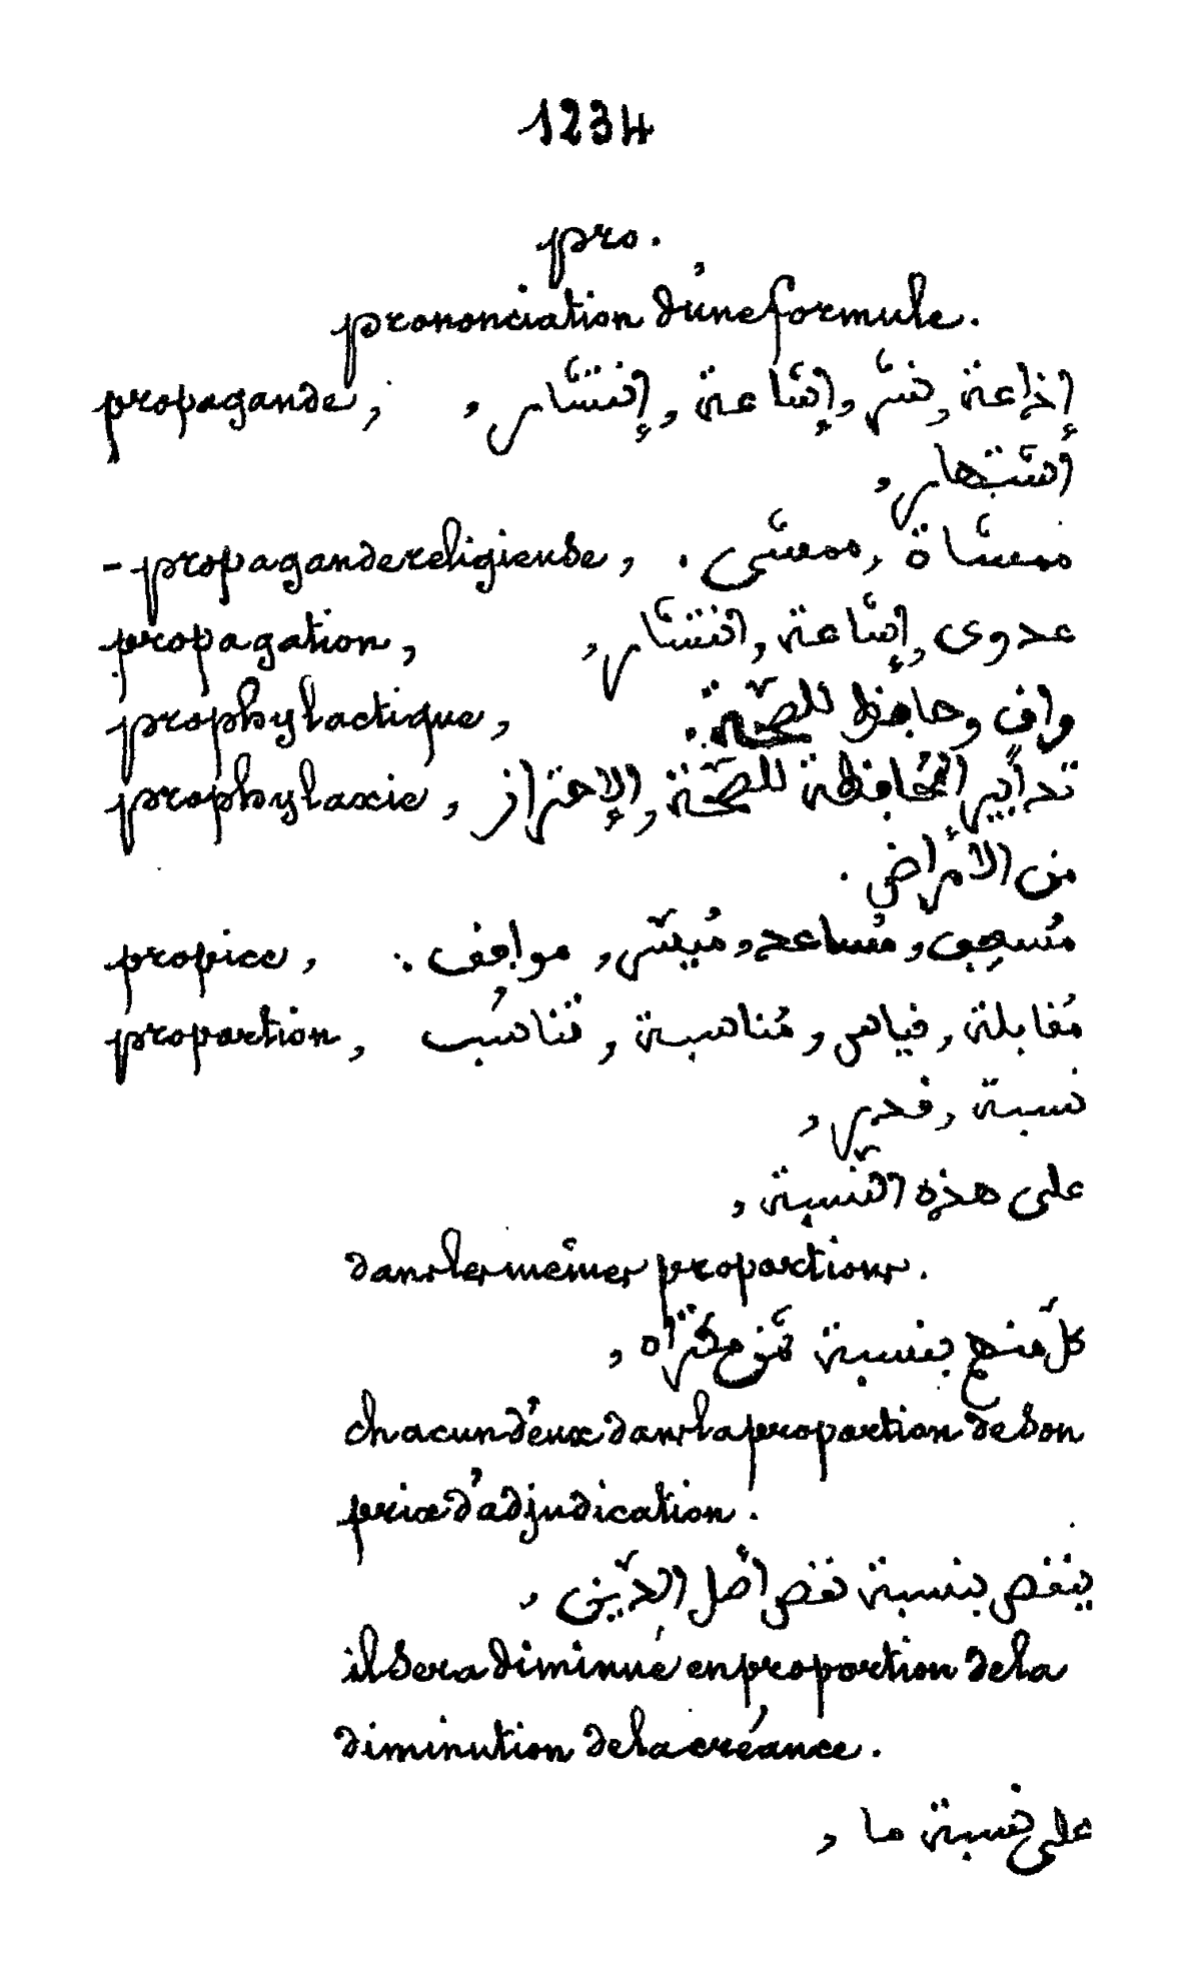 1234
pro.
prononciation d'une formule.
propagande, إذاعة, نشر, إشاعة, إنتشار,
أشتهار,
- propagande religieuse, ممشاة, ممشى.
propagation, عدوى, إشاعة, انتشار,
prophylactique, واق وحافظ للصّحّة.
prophylaxie, تدابير المُحافظة للصّحّة, والإحتراز
من الأمْراض.
propice, مُسعِف, مُساعد, مُيسّر, موافق.
proportion, مُقابلة, قياس, مُناسبة, تناسُب
نسبة, قدر,
على هذه النّسبة,
dans les mêmes proportions.
كلّ منهم بنسبة ثمن مشتراه,
chacun d'eux dans la proportion de son
prix d'adjudication.
ينقص بنسبة نقص أصل الدّين,
il sera diminué en proportion de la
diminution de la créance.
على نسبة ما,